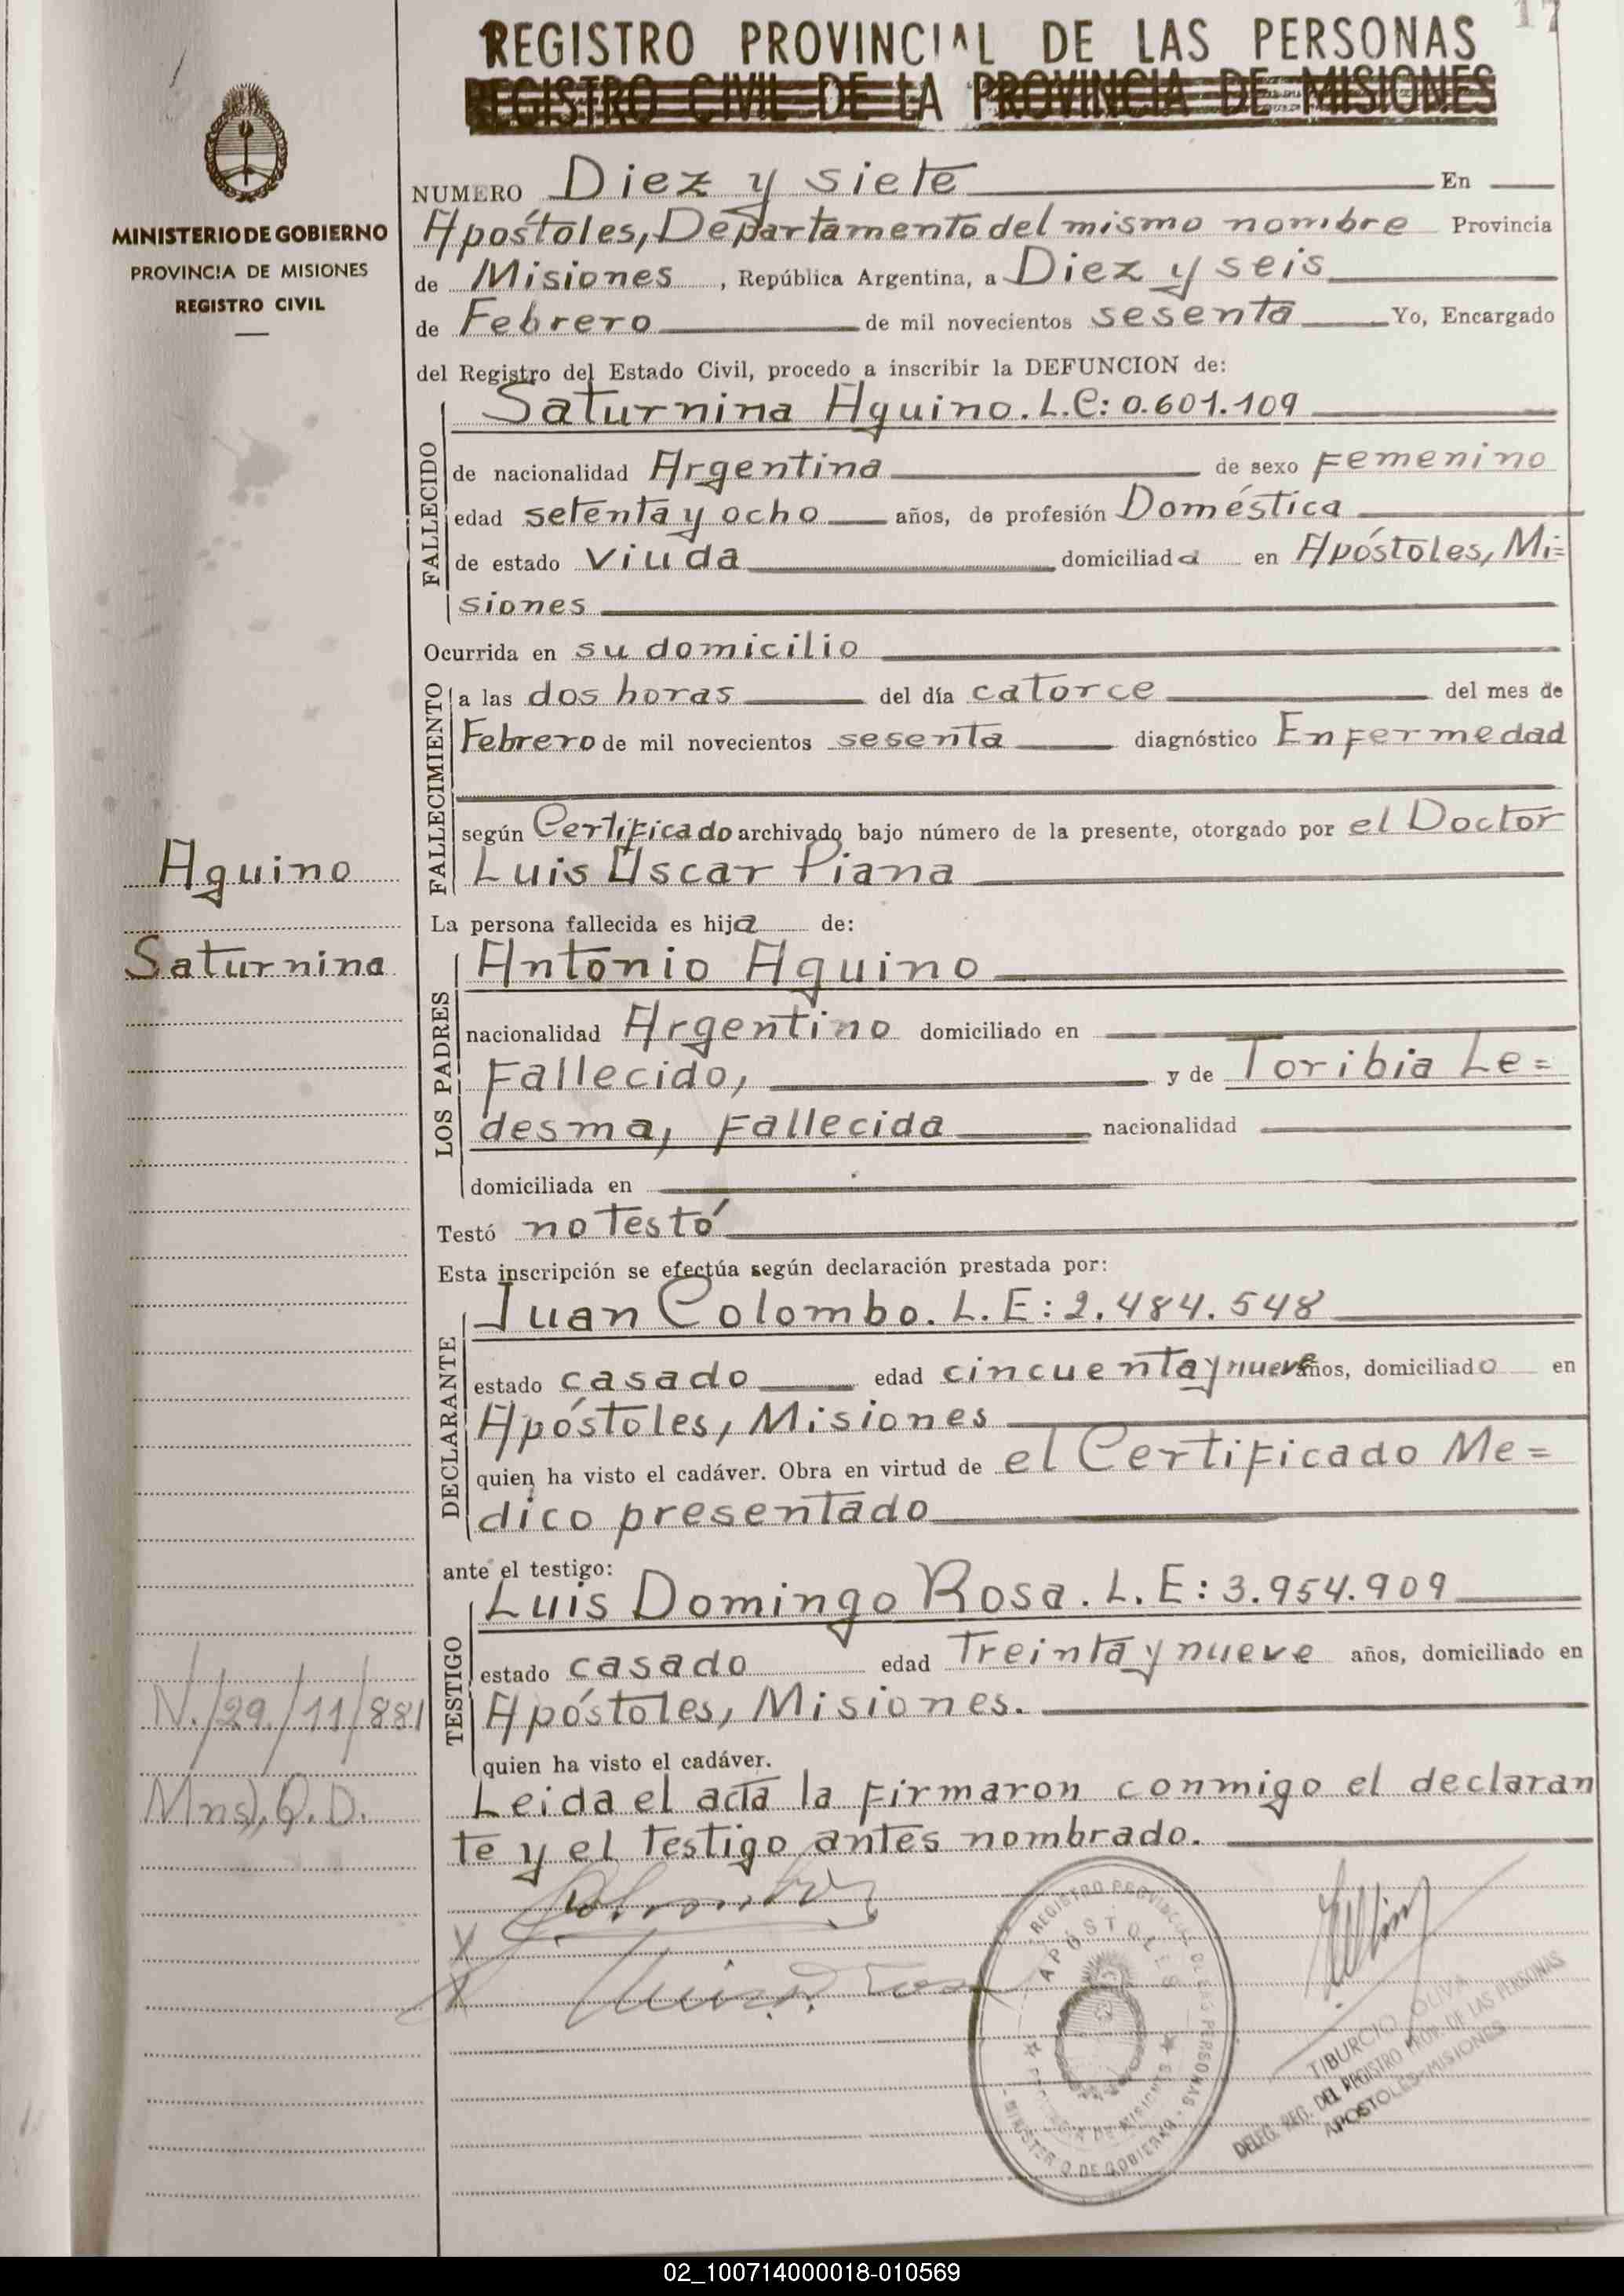 17
REGISTRO PROVINCIAL DE LAS PERSONAS
REGISTRO CIVIL DE LA PROVINCIA DE MISIONES
MINISTERIO DE GOBIERNO
PROVINCIA DE MISIONES
REGISTRO CIVIL
NUMERO Diez y siete En
Apóstoles, Departamento del mismo nombre Provincia
de Misiones, República Argentina, a Diez y seis
de Febrero de mil novecientos sesenta Yo, Encargado
del Registro del Estado Civil, procedo a inscribir la DEFUNCION de:
FALLECIDO
Saturnina Aquino. L.C: 0.601.109
de nacionalidad Argentina de sexo Femenino
edad setenta y ocho años, de profesión Doméstica
de estado viuda domiciliada en Apóstoles, Mi=
siones
Ocurrida en su domicilio
FALLECIMIENTO
a las dos horas del día catorce del mes de
Febrero de mil novecientos sesenta diagnóstico Enfermedad
según Certificado archivado bajo número de la presente, otorgado por el Doctor
Luis Oscar Piana
Aquino
Saturnina
La persona fallecida es hija de:
LOS PADRES
Antonio Aquino
nacionalidad Argentino domiciliado en
Fallecido, y de Toribia Le=
desma, Fallecida nacionalidad
domiciliada en
Testó no Testó
Esta inscripción se efectúa según declaración prestada por:
DECLARANTE
Juan Colombo. L.E: 2.484.548
estado casado edad cincuenta y nueve años, domiciliado en
Apóstoles, Misiones
quien ha visto el cadáver. Obra en virtud de el Certificado Me=
dico presentado
ante el testigo:
TESTIGO
Luis Domingo Rosa. L.E: 3.954.909
estado casado edad Treinta y nueve años, domiciliado en
Apóstoles, Misiones.
quien ha visto el cadáver.
N./29/11/881
Leida el acta la firmaron conmigo el declaran
te y el testigo antes nombrado.
REGISTRO PROVINCIAL DE LAS PERSONAS
APOSTOLES
PROVINCIA DE MISIONES
MINISTERIO DE GOBIERNO
TIBURCIO OLIVA
DELEG. REG. DEL REGISTRO PROV. DE LAS PERSONAS
APOSTOLES-MISIONES
02_100714000018-010569